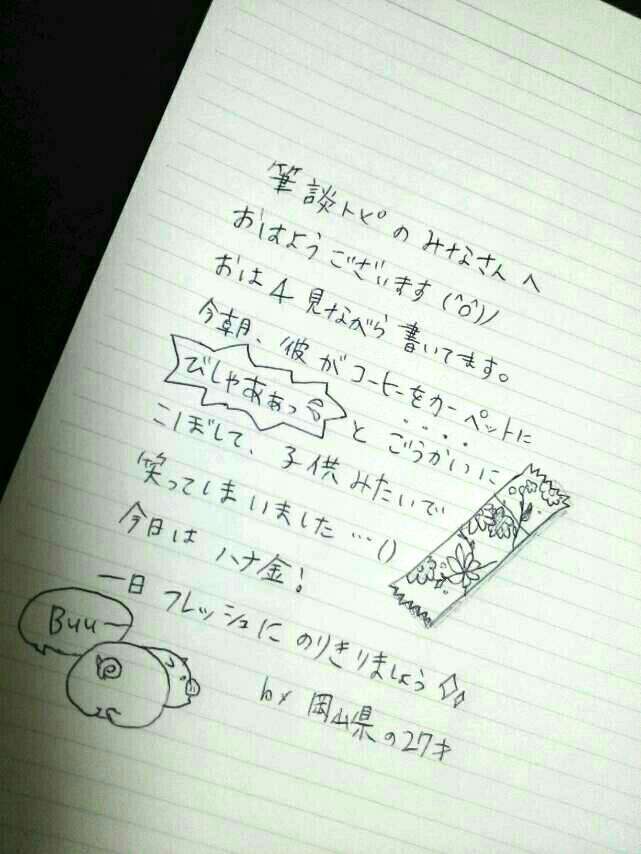 筆談トピのみなさんへ
おはようございます(^o^)/
おは4見ながら書いてます。
今朝、彼がコーヒーをカーペットに
びしゃあぁっ とごうかいに
こぼして、子供みたいで
笑ってしまいました…()
今日はハナ金!
一日フレッシュにのりきりましょう
Buu—
by 岡山県の27才